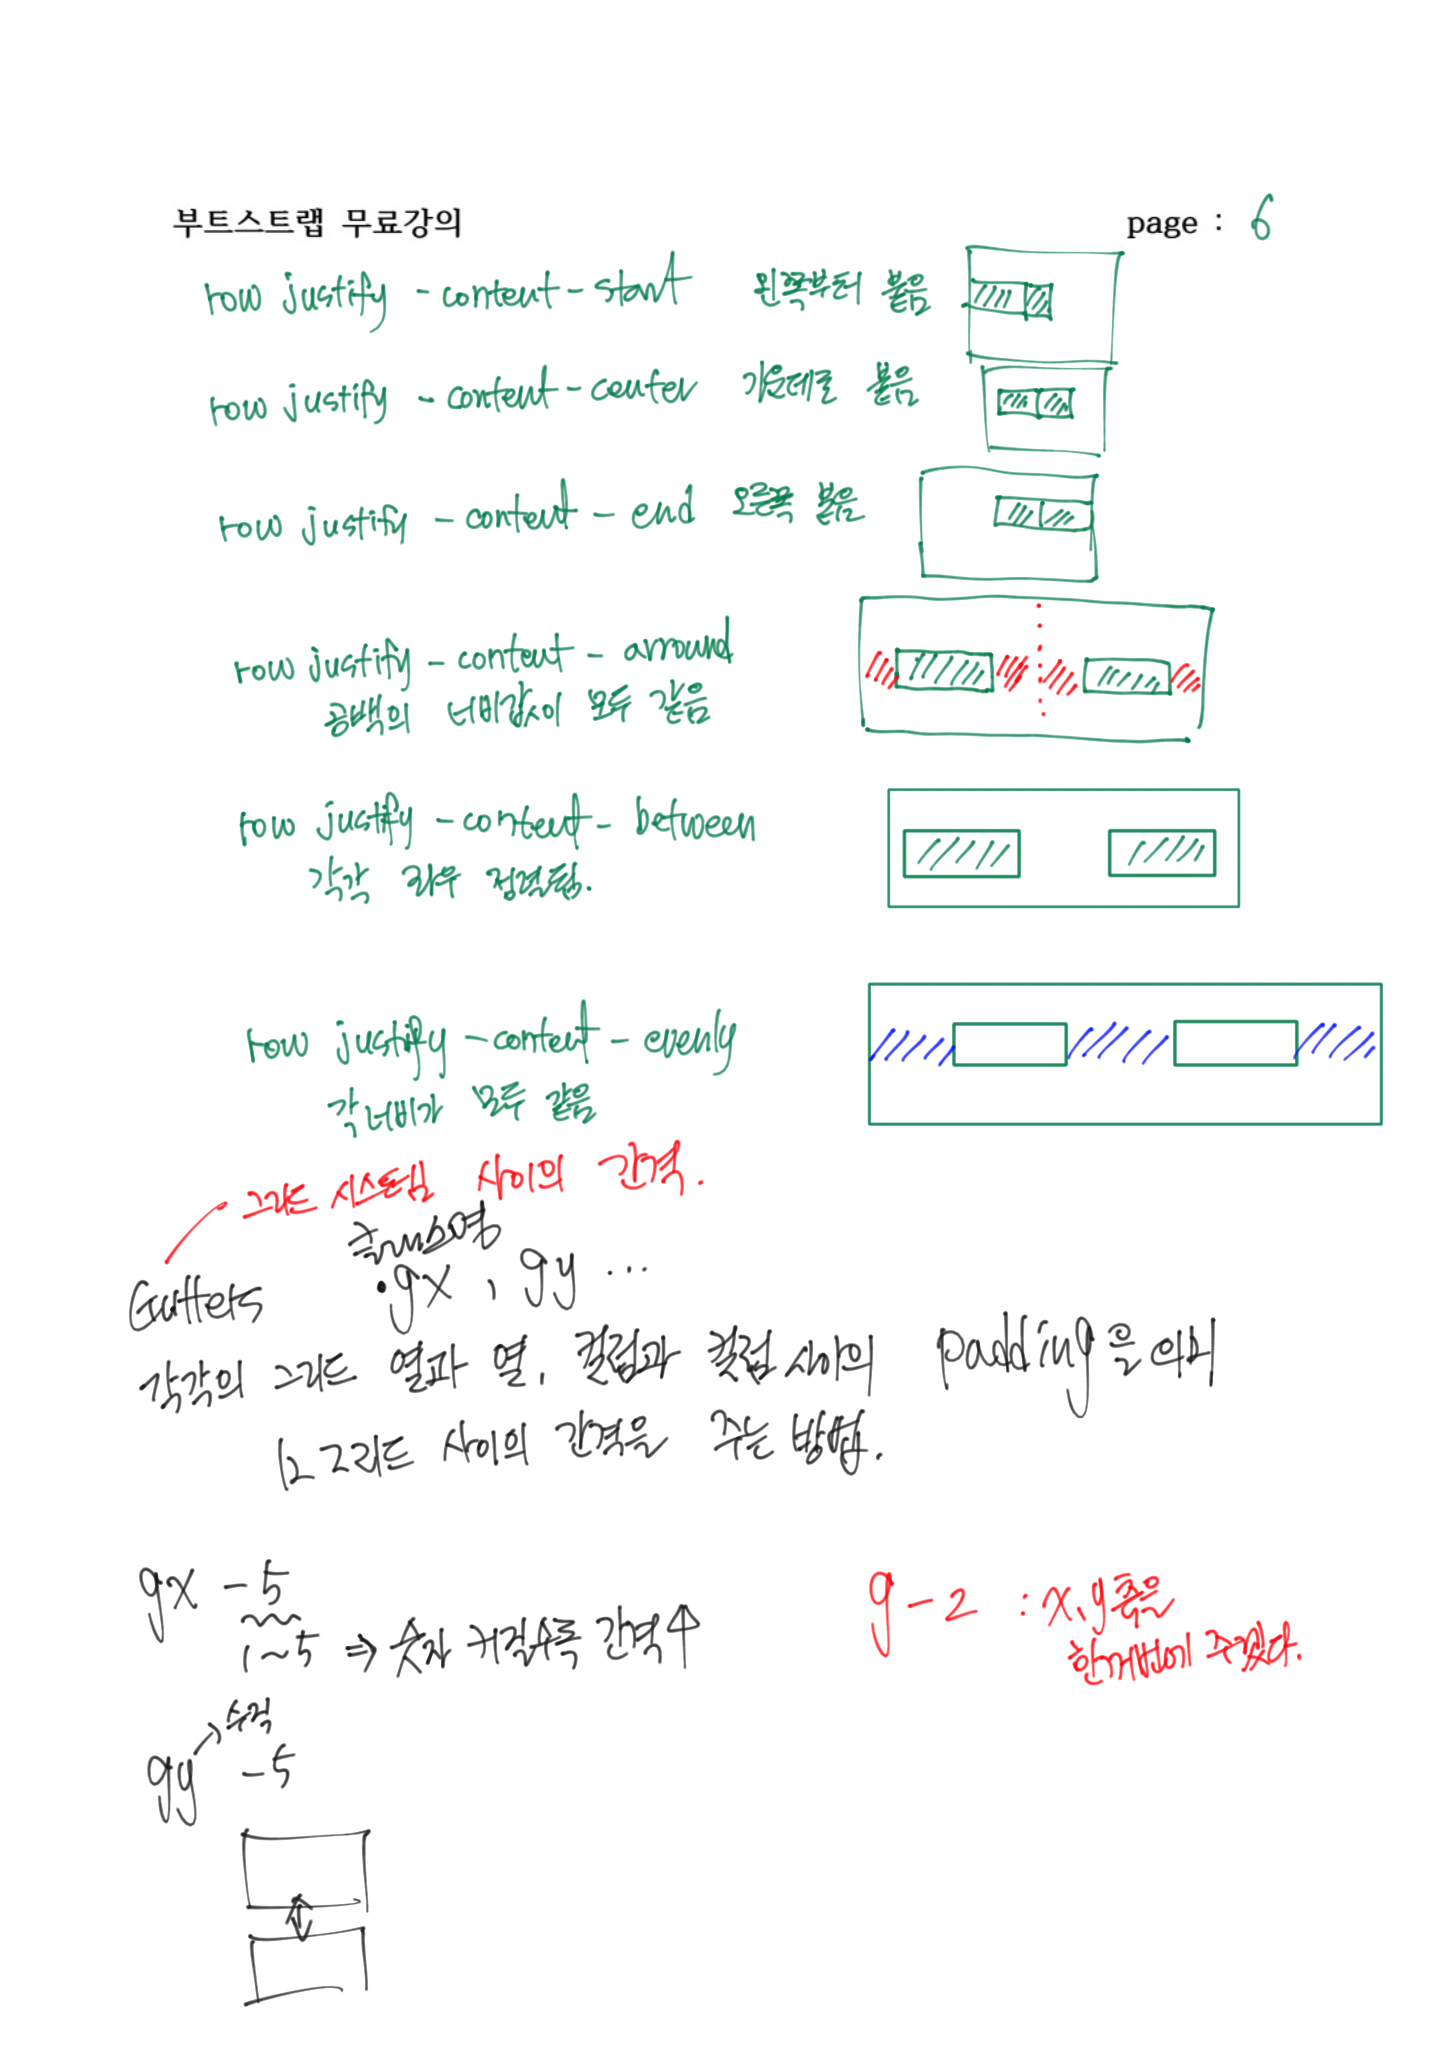 부트스트랩 무료강의 page : 6
row justify - content - start 왼쪽부터 붙음
row justify - content - center 가운데로 붙음
row justify - content - end 오른쪽 붙음
row justify - content - arround
공백의 너비값이 모두 같음
row justify - content - between
각각 좌우 정렬됨.
row justify - content - evenly
각 너비가 모두 같음
그리드 시스템 사이의 간격.
클래스명
Gutters .gx , gy ...
각각의 그리드 열과 열, 컬럼과 컬럼 사이의 padding을 의미
그리드 사이의 간격을 주는 방법.
gx - 5
1~5 ⇒ 숫자 커질수록 간격↑
g - 2 : x, y 축을
한꺼번에 주겠다.
→ 수직
gy - 5